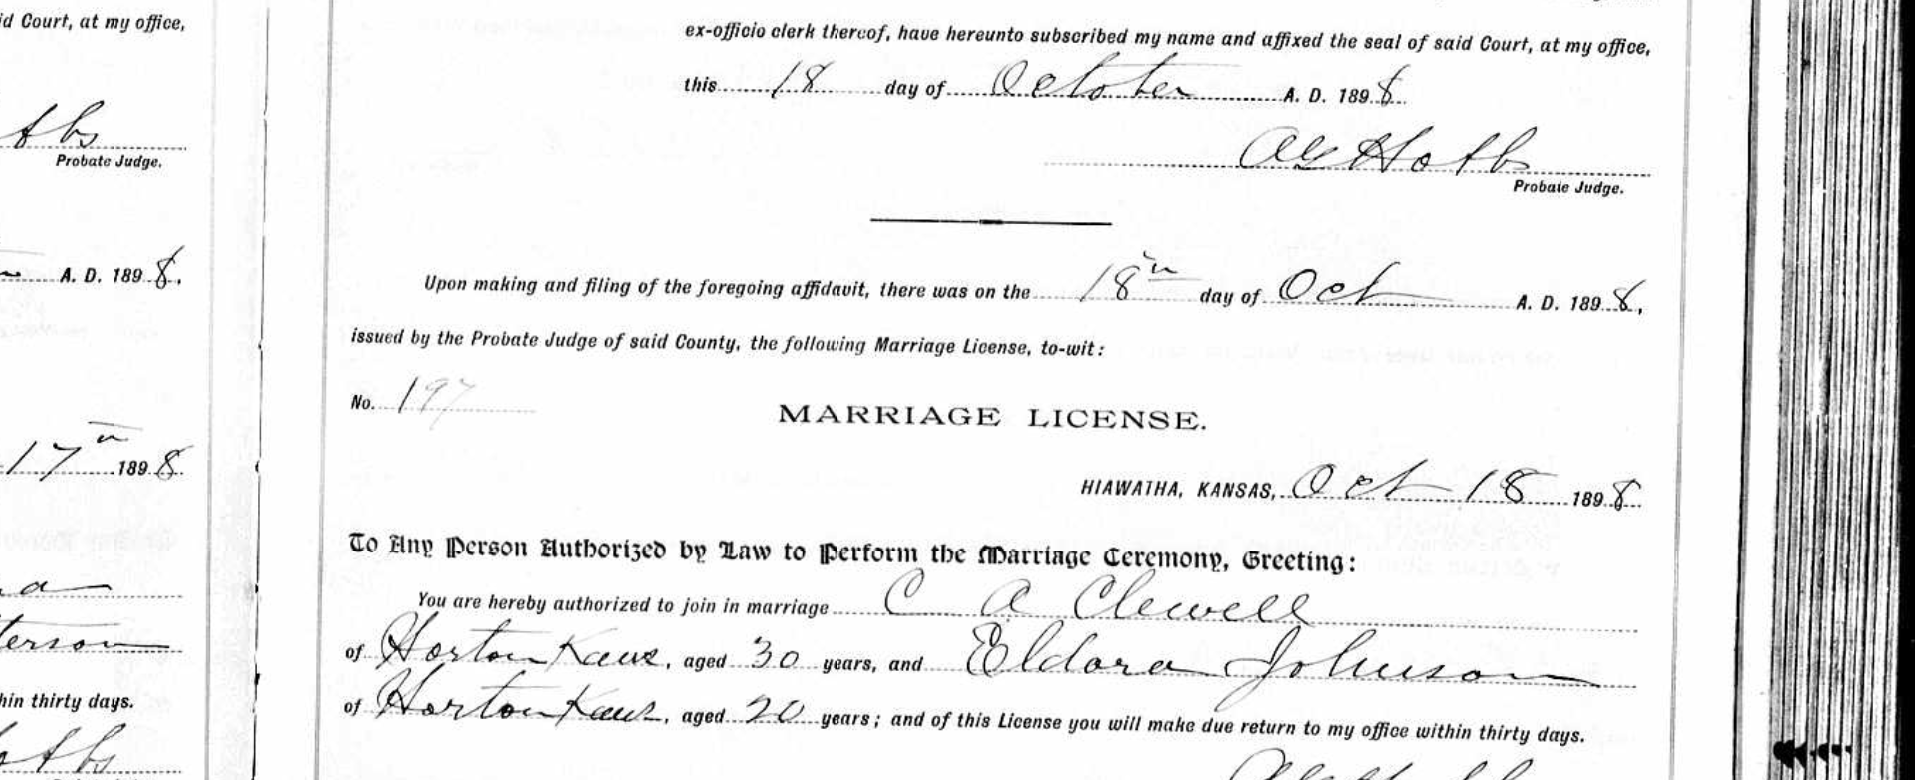 id Court, at my office,
bbs
Probate Judge.
A. D. 1898.
17th 1898
a
terson
hin thirty days.
bbs
ex-officio clerk thereof, have hereunto subscribed my name and affixed the seal of said Court, at my office,
this 18 day of October A. D. 1898
Hobbs
Probate Judge.
Upon making and filing of the foregoing affidavit, there was on the 18th day of Oct A. D. 1898,
issued by the Probate Judge of said County, the following Marriage License, to-wit:
No. 197
MARRIAGE LICENSE.
HIAWATHA, KANSAS, Oct 18 1898
To Any Person Authorized by Law to Perform the Marriage Ceremony, Greeting:
You are hereby authorized to join in marriage C A Clewell
of Horton Kans, aged 30 years, and Eldora Johnson
of Horton Kans, aged 20 years; and of this License you will make due return to my office within thirty days.